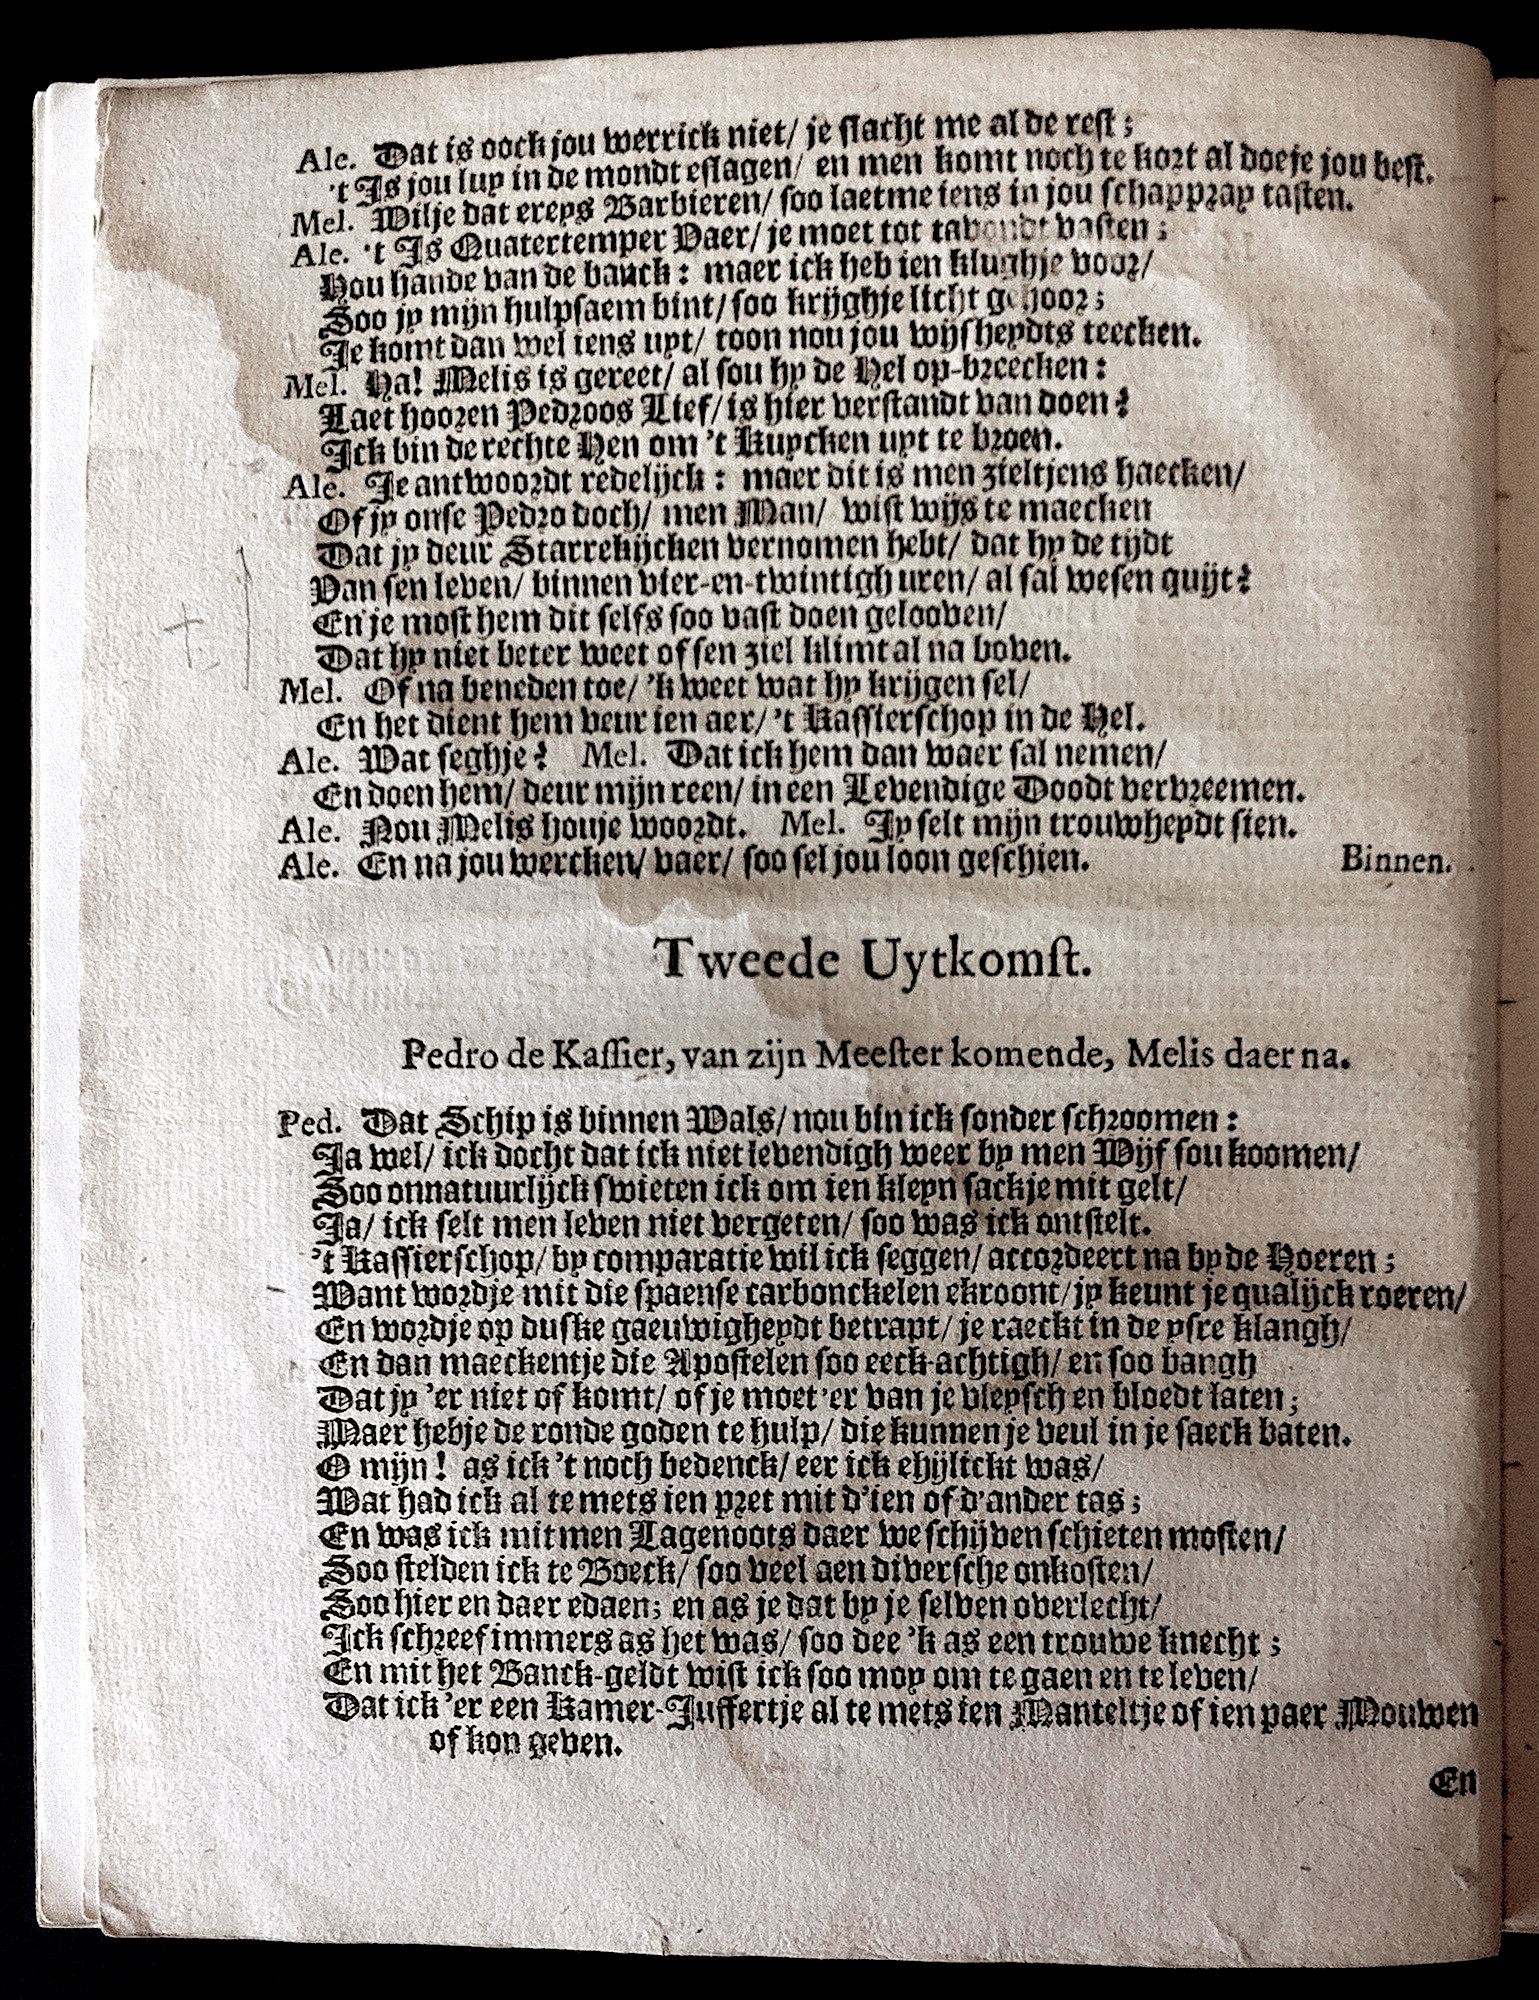 Ale. Dat is oock jou werrick niet/ je slacht me al de rest;
't Is jou luy in de mondt eslagen/ en men komt noch te kort al doeje jou best.
Mel. Wilje dat ereys Barbieren/ soo laetme iens in jou schappray tasten.
Ale. 't Is Quatertemper Vaer/ je moet tot tavondt vasten;
Hou hande van de banck: maer ick heb ien klughje voor/
Soo jy mijn hulpsaem bint/ soo krijghje licht gehoor;
Je komt dan wel iens uyt/ toon nou jou wijsheydts teecken.
Mel. Ha! Melis is gereet/ al sou hy de Hel op-breecken:
Laet hooren Pedroos Lief/ is hier verstandt van doen?
Ick bin de rechte Hen om 't Kuycken uyt te broen.
Ale. Je antwoordt redelijck: maer dit is men zieltjens haecken/
Of jy onse Pedro doch/ men Man/ wist wijs te maecken
Dat jy deur Starrekijcken vernomen hebt/ dat hy de tijdt
Van sen leven/ binnen vier-en-twintigh uren/ al sal wesen quijt?
En je most hem dit selfs soo vast doen gelooven/
Dat hy niet beter weet of sen ziel klimt al na boven.
Mel. Of na beneden toe/ 'k weet wat hy krijgen sel/
En het dient hem veur ien aer/ 't Kassierschop in de Hel.
Ale. Wat seghje? Mel. Dat ick hem dan waer sal nemen/
En doen hem/ deur mijn reen/ in een Levendige Doodt vervreemen.
Ale. Nou Melis houje woordt. Mel. Jy selt mijn trouwheydt sien.
Ale. En na jou wercken/ vaer/ soo sel jou loon geschien. Binnen.
Tweede Uytkomst.
Pedro de Kassier, van zijn Meester komende, Melis daer na.
Ped. Dat Schip is binnen Wals/ nou bin ick sonder schroomen:
Ja wel/ ick docht dat ick niet levendigh weer by men Wijf sou koomen/
Soo onnatuurlijck swieten ick om ien kleyn sackje mit gelt/
Ja/ ick selt men leven niet vergeten/ soo was ick ontstelt.
't Kassierschop/ by comparatie wil ick seggen/ accordeert na by de Hoeren;
Want wordje mit die spaense carbonckelen ekroont/ jy keunt je qualijck roeren/
En wordje op duske gaeuwigheydt betrapt/ je raeckt in de ysre klangh/
En dan maeckentje die Apostelen soo eeck-achtigh/ en soo bangh
Dat jy 'er niet of komt/ of je moet 'er van je vleysch en bloedt laten;
Maer hebje de ronde goden te hulp/ die kunnen je veul in je saeck baten.
O mijn! as ick 't noch bedenck/ eer ick ehijlickt was/
Wat had ick al te mets ien pret mit d'ien of d'ander tas;
En was ick mit men Lagenoots daer we schijven schieten mosten/
Soo stelden ick te Boeck/ soo veel aen diversche onkosten/
Soo hier en daer edaen; en as je dat by je selven overlecht/
Ick schreef immers as het was/ soo dee 'k as een trouwe knecht;
En mit het Banck-geldt wist ick soo moy om te gaen en te leven/
Dat ick 'er een Kamer-Juffertje al te mets ien Manteltje of ien paer Mouwen
of kon geven.
En